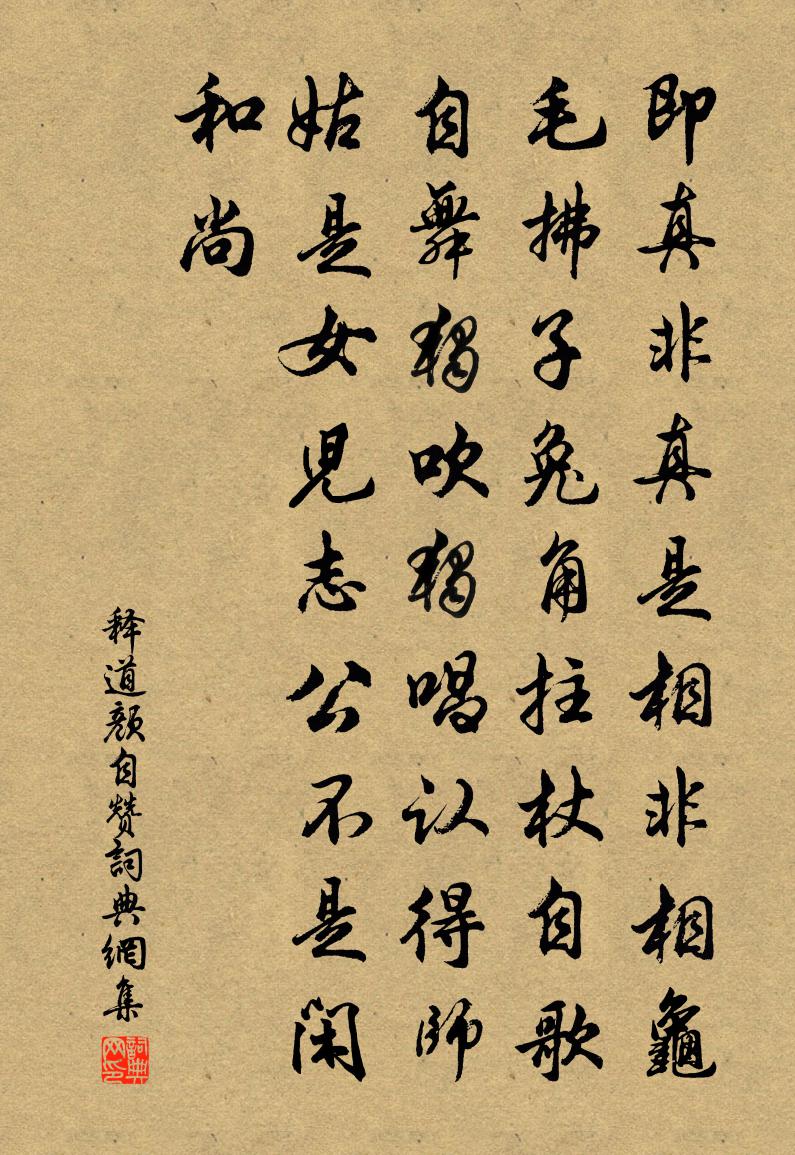 即真非真是相非相龜
毛拂子兔角拄杖自歌
自舞獨吹獨唱认得師
姑是女兒志公不是閑
和尚
释道颜自赞詞典網集
詞典网印